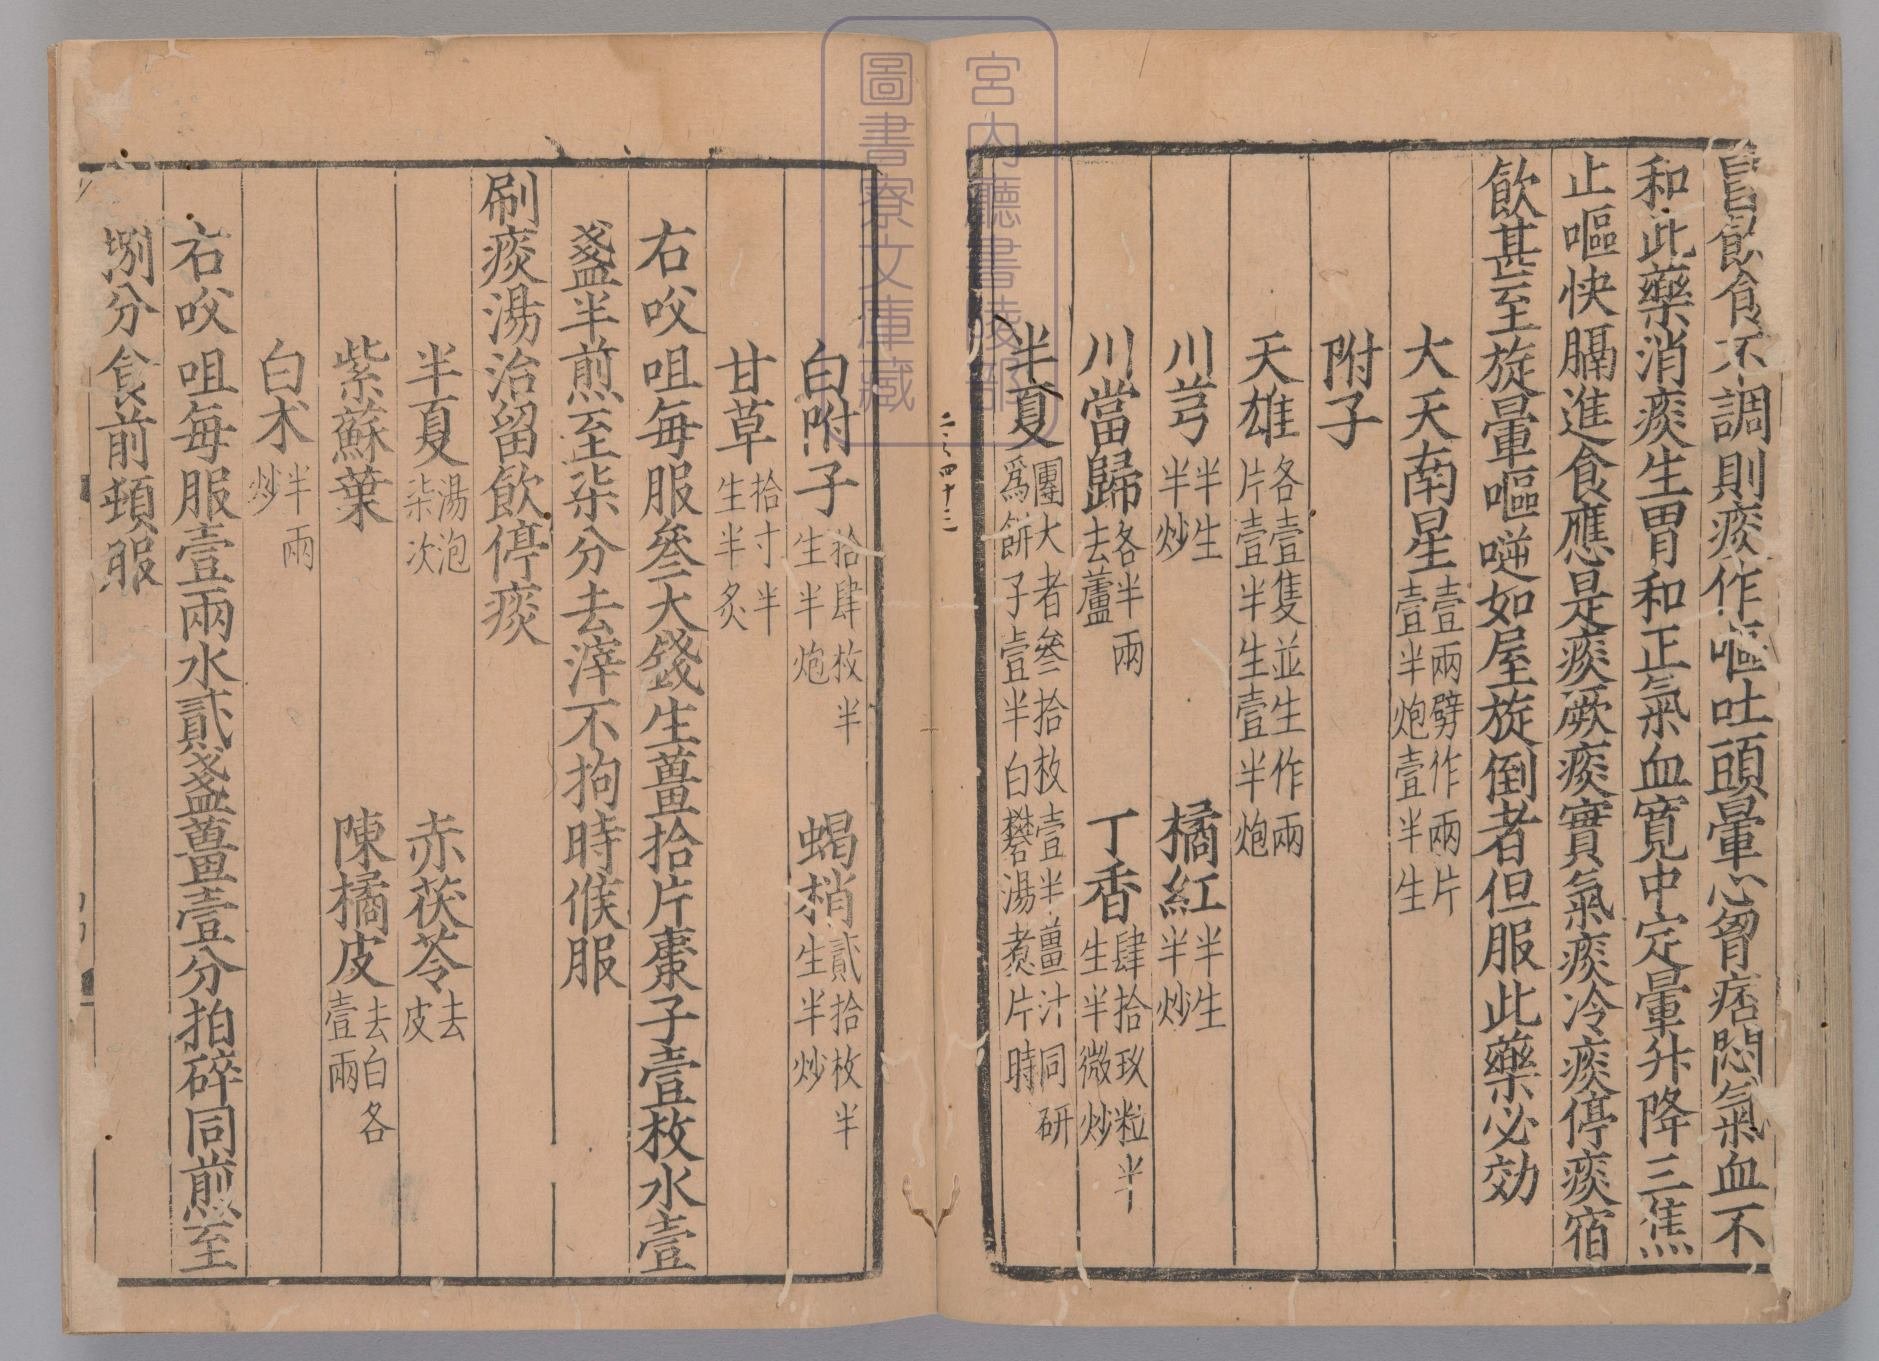 飲食不調則痰作嘔吐頭暈心胷痞悶氣血不
和此藥消痰生胃和正氣血寬中定暈升降三焦
止嘔快膈進食應是痰厥痰實氣痰冷痰停痰宿
飲甚至旋暈嘔噦如屋旋倒者但服此藥必効
大天南星壹兩劈作兩片
壹半炮壹半生
附子
天雄各壹隻並生作兩
片壹半生壹半炮
川芎半生
半炒
橘紅半生
半炒
川當歸各半兩
去蘆
丁香肆拾玖粒半
生半微炒
半夏團大者叄拾枚壹半薑汁同研
爲餅子壹半白礬湯煑片時
白附子拾肆枚半
生半炮
蝎梢貳拾枚半
生半炒
甘草拾寸半
生半炙
右㕮咀每服叄大錢生薑拾片棗子壹枚水壹
盞半煎至柒分去滓不拘時候服
刷痰湯治留飲停痰
半夏湯泡
柒次
赤茯苓去
皮
紫蘇葉
陳橘皮去白各
壹兩
白术半兩
炒
右㕮咀每服壹兩水貳盞薑壹分拍碎同煎至
捌分食前頓服
二之四十三
宮内廳書陵部
圖書寮文庫藏